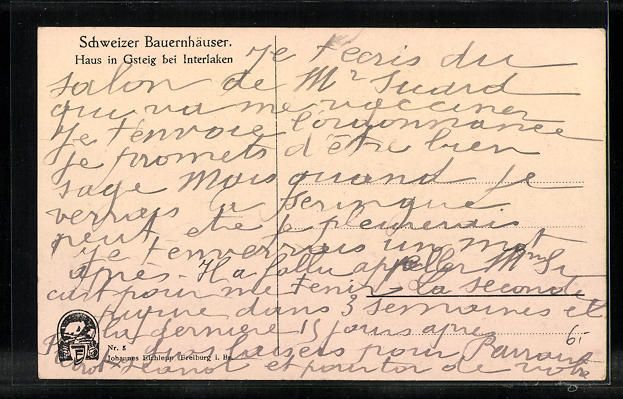 Schweizer Bauernhäuser.
Haus in Gsteig bei Interlaken
Je t'ecris du
salon de Mr Suard
qui va me vacciner
Je t'envoie l'ordonnance
Je promets d'être bien
sage mais quand je
verrais la seringue
peut etre je pleurerais
Je t'enverrais un mot
apres - Il a fallu appeller Mme
pour me tenir - La seconde
piqure dans 3 semaines et
la derniere 15 jours apres
baisers pour
et pour toi de votre
Nr. 5
Johannes Elchlepp Freiburg i. Br.